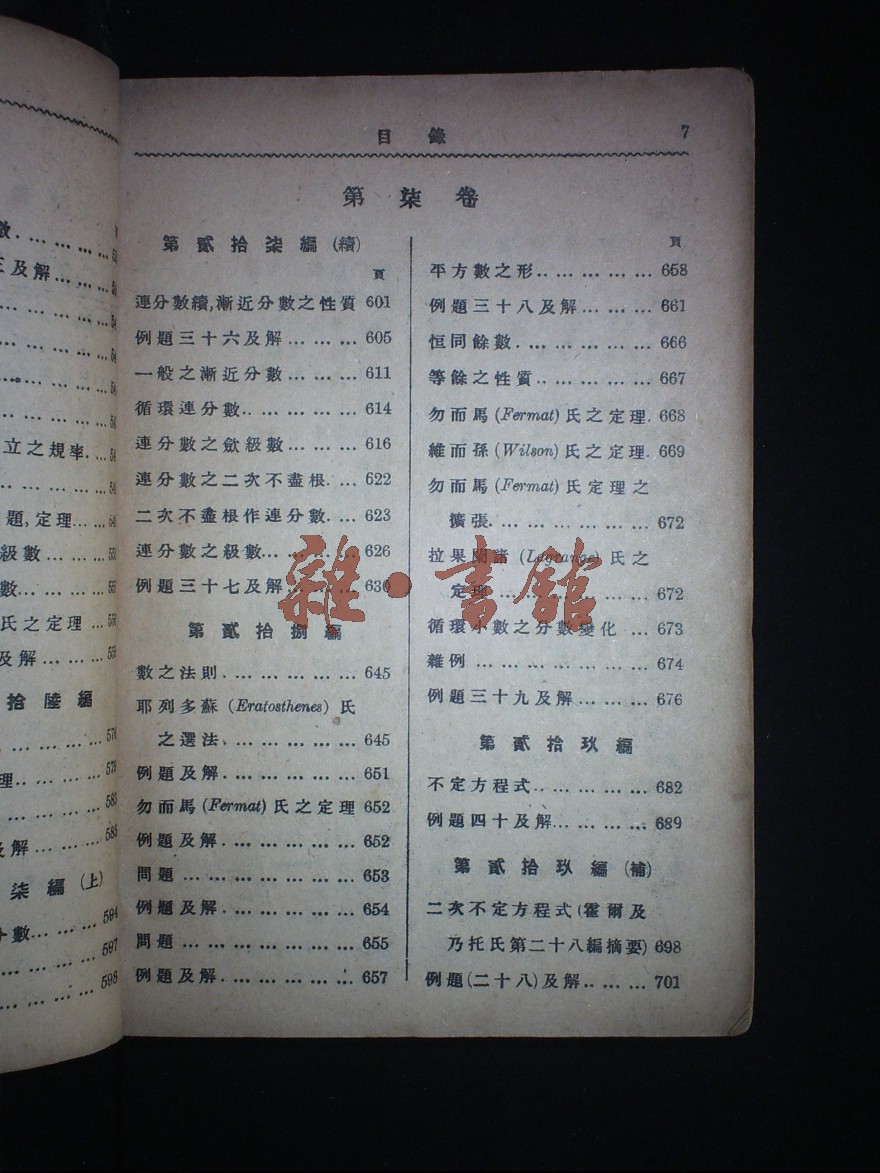 目錄 7
第柒卷
第貳拾柒編(續)
頁
連分數續,漸近分數之性質 601
例題三十六及解 ... ... ... 605
一般之漸近分數 ... ... ... 611
循環連分數.. ... ... ... ... 614
連分數之歛級數 ... ... ... 616
連分數之二次不盡根. ... 622
二次不盡根作連分數. ... 623
連分數之級數... ... ... ... 626
例題三十七及解... ... ... 630
第貳拾捌編
數之法則. ... ... ... ... ... 645
耶列多蘇 (Eratosthenes) 氏
之選法. ... ... ... ... ... 645
例題及解. ... ... ... ... ... 651
勿而馬 (Fermat) 氏之定理 652
例題及解. ... ... ... ... ... 652
問題 ... ... ... ... ... ... ... 653
例題及解. ... ... ... ... ... 654
問題 ... ... ... ... ... ... ... 655
例題及解. ... ... ... ... ... 657
頁
平方數之形.. ... ... ... ... 658
例題三十八及解 ... ... ... 661
恒同餘數. ... ... ... ... ... 666
等餘之性質.. ... ... ... ... 667
勿而馬 (Fermat) 氏之定理. 668
維而孫 (Wilson) 氏之定理. 669
勿而馬 (Fermat) 氏定理之
擴張. ... ... ... ... ... ... 672
拉果闌諸 (Lagrange) 氏之
定理 ... ... ... ... ... ... 672
循環小數之分數變化 ... 673
雜例 ... ... ... ... ... ... ... 674
例題三十九及解... ... ... 676
第貳拾玖編
不定方程式.. ... ... ... ... 682
例題四十及解... ... ... ... 689
第貳拾玖編(補)
二次不定方程式(霍爾及
乃托氏第二十八編摘要) 698
例題(二十八)及解.. ... ... 701
雜·書館
三及解
立之規率
題,定理
級數
數
氏之定理
及解
拾陸編
理
及解
柒編(上)
分數 594
597
598